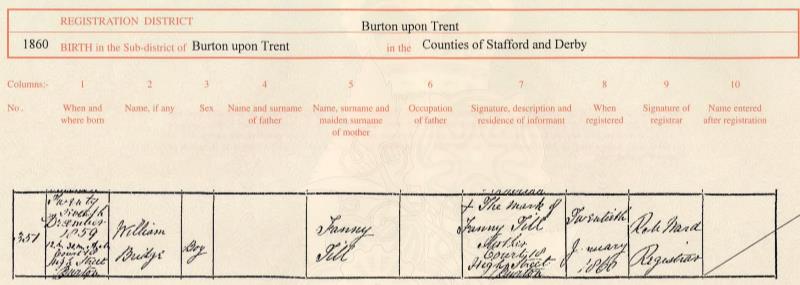 REGISTRATION DISTRICT
Burton upon Trent
1860 BIRTH in the Sub-district of Burton upon Trent in the Counties of Stafford and Derby
Columns:- 1 2 3 4 5 6 7 8 9 10
No. When and where born Name, if any Sex Name and surname of father Name, surname and maiden surname of mother Occupation of father Signature, description and residence of informant When registered Signature of registrar Name entered after registration
351
Twenty
December
1859
High Street
Burton
William
Bridge
Boy
Fanny
Till
The mark of
Fanny Till
Mother
Court 18
High Street
Burton
Twentieth
January
1860
Robt Ward
Registrar